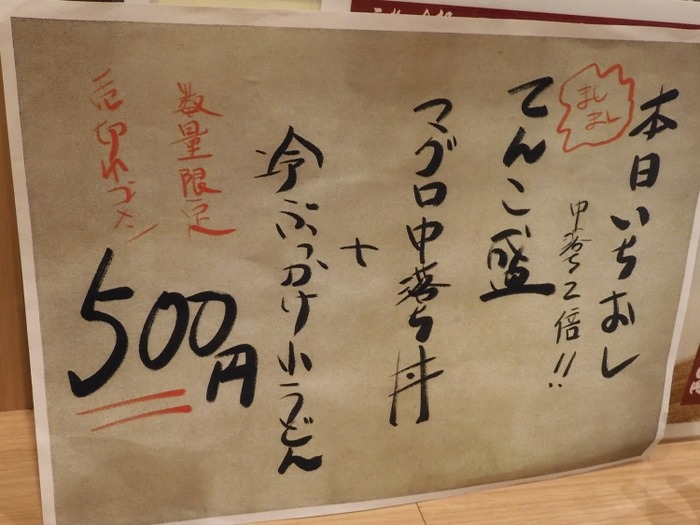 本日いちおし
ましまし
中落ち2倍!!
てんこ盛
マグロ中落ち丼
+
冷ぶっかけ小うどん
500円
数量限定
売切れゴメン